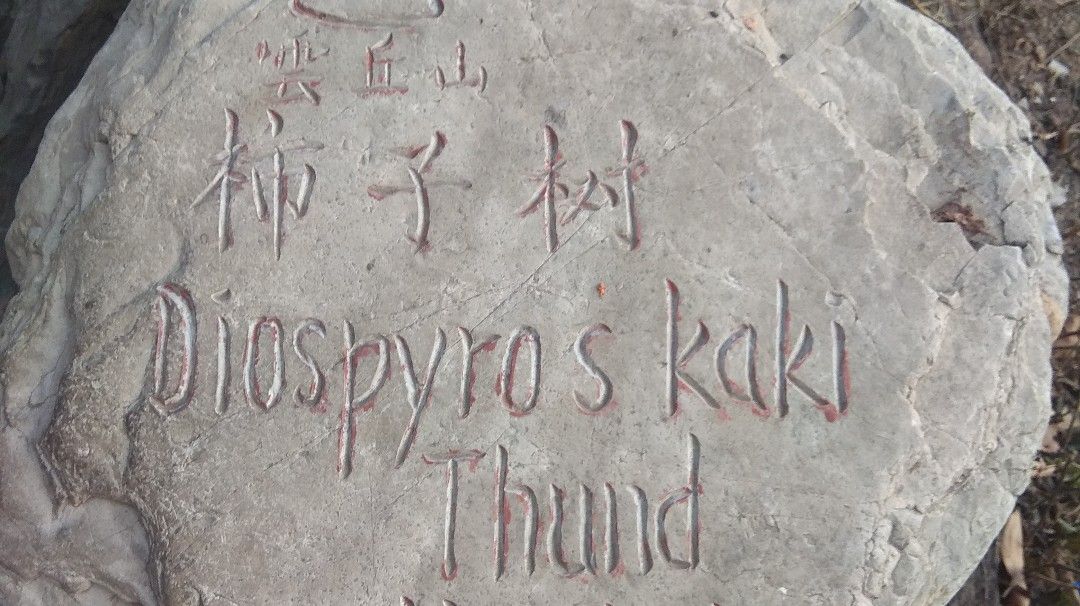 雲丘山
柿子树
Diospyros kaki
Thund